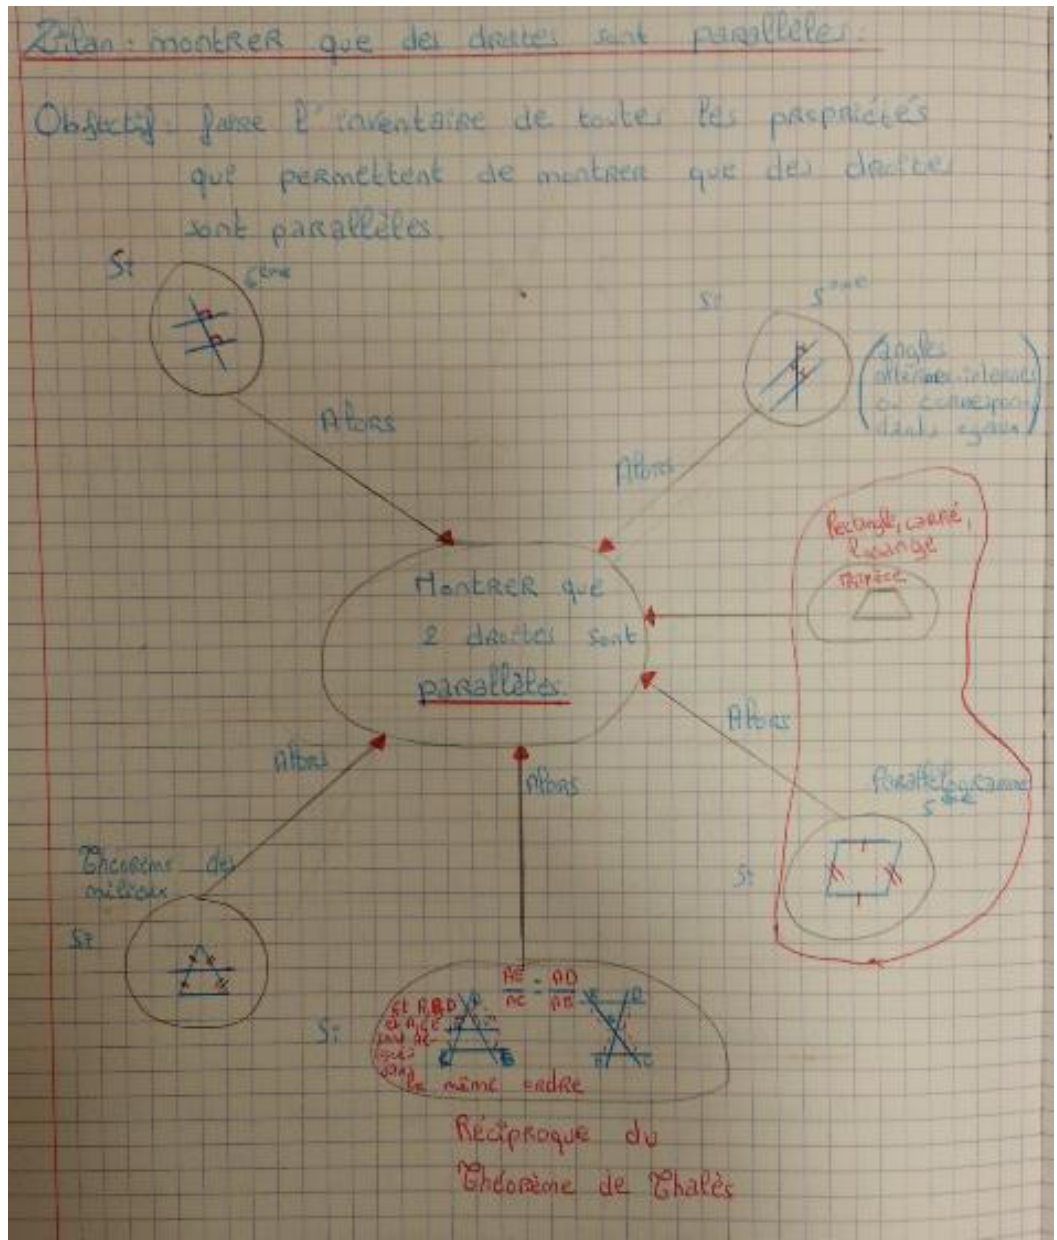 Bilan : montrer que des droites sont parallèles.
Objectif : faire l'inventaire de toutes les propriétés
que permettent de montrer que des droites
sont parallèles.
Si
6ème
Si 5ème
(angles
alternes-internes
ou correspon
dants égaux)
Alors
Alors
Rectangle, carré,
losange
trapèze
Montrer que
2 droites sont
parallèles.
Alors
Alors
Alors
Parallélogramme
5ème
Théorème des
milieux
Si
Si
AE/AC = AD/AB
Si
et A, B, D
et A, C, E
sont ali-
gnés
dans
le même ordre
Réciproque du
Théorème de Thalès